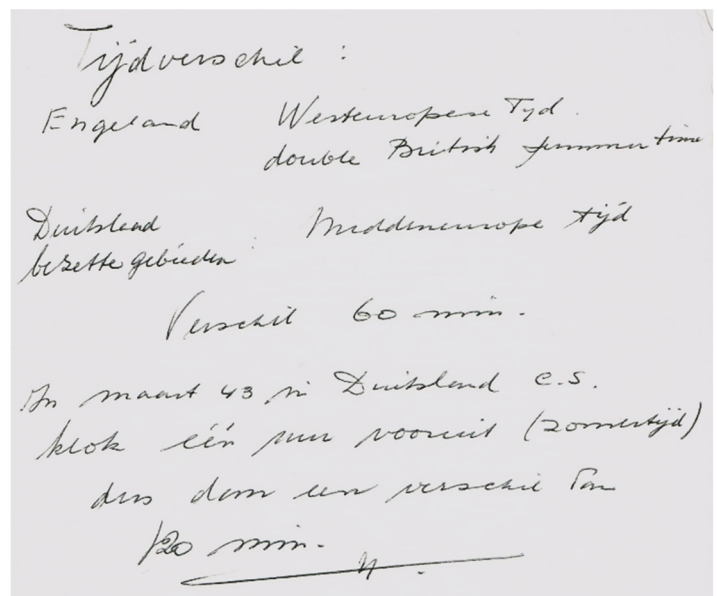 Tijdverschil :
Engeland Westeuropese Tyd.
double British summer time
Duitsland Middeneurope tijd
bezette gebieden :
Verschil 60 min.
In maart 43 in Duitsland c.s.
klok één uur vooruit (zomertijd)
dus dan een verschil van
120 min.